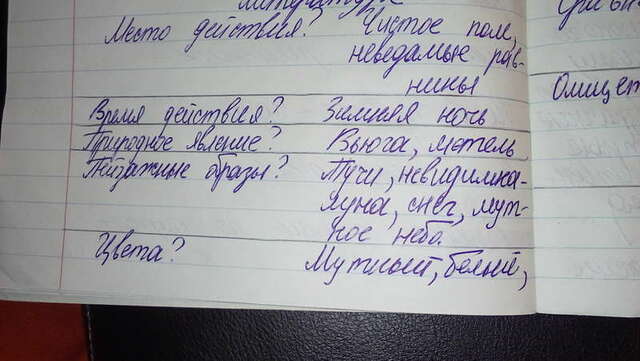 литературе
Место действия? Чистое поле,
неведомые рав-
нины
Время действия? Зимняя ночь
Природное явление? Вьюга, метель
Пейзажные образы? Тучи, невидимка-
луна, снег, мут-
ное небо.
Цвета? Мутный, белый,
Олицет